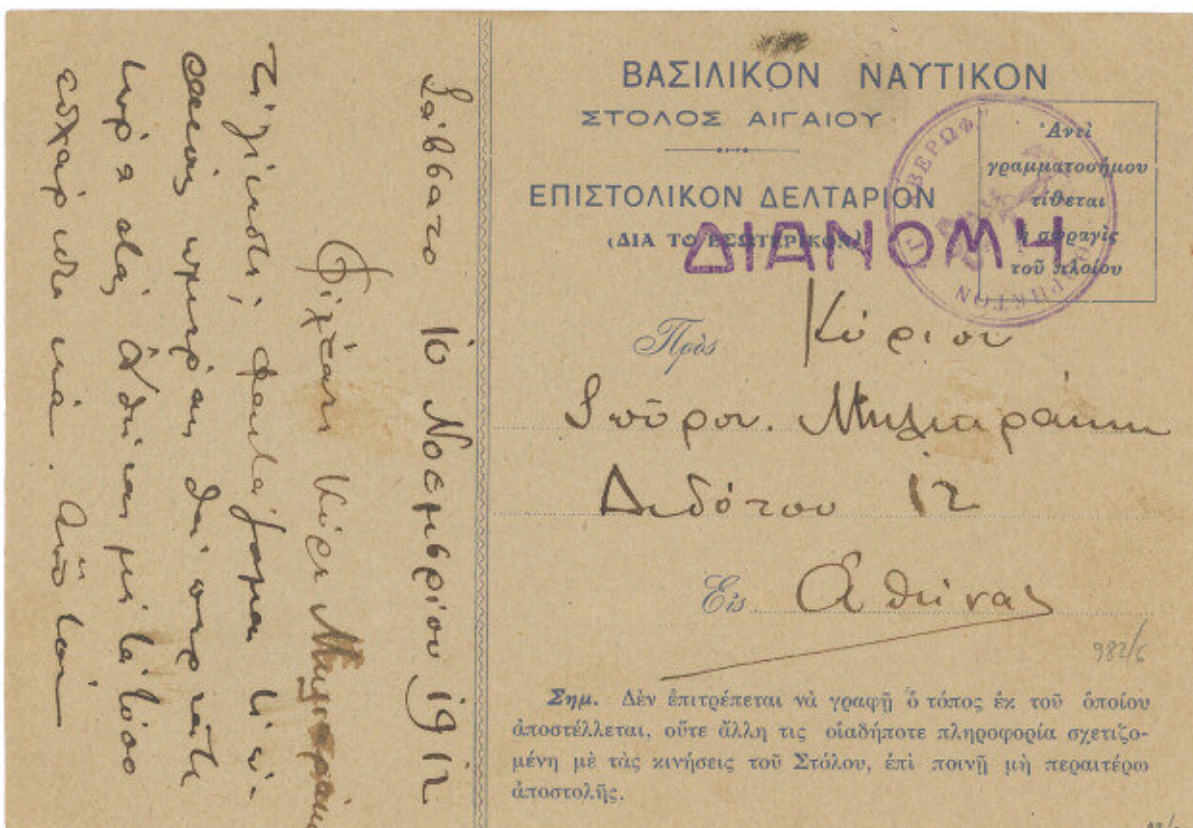 ΒΑΣΙΛΙΚΟΝ ΝΑΥΤΙΚΟΝ
ΣΤΟΛΟΣ ΑΙΓΑΙΟΥ
ΕΠΙΣΤΟΛΙΚΟΝ ΔΕΛΤΑΡΙΟΝ
(ΔΙΑ ΤΟ ΕΣΩΤΕΡΙΚΟΝ)
ΔΙΑΝΟΜΗ
Ἀντὶ
γραμματοσήμου
τίθεται
ἡ σφραγὶς
τοῦ πλοίου
Πρὸς Κύριον
Σπῦρον. Μηλιαράκη
Διδότου 12
Εἰς Ἀθήνας
982/6
Σημ. Δὲν ἐπιτρέπεται νὰ γραφῇ ὁ τόπος ἐκ τοῦ ὁποίου
ἀποστέλλεται, οὔτε ἄλλη τις οἱαδήποτε πληροφορία σχετιζο-
μένη μὲ τὰς κινήσεις τοῦ Στόλου, ἐπὶ ποινῇ μὴ περαιτέρω
ἀποστολῆς.
Σάββατο 10 Νοεμβρίου 1912
Φίλτατε Κύριε Μηλιαράκη
Τί γίνεστε; φαντάζομαι τί
ἡμέρας θὰ περνᾶτε
τώρα στὰς Ἀθήνας μὲ τὰ τόσο
εὐχάριστα νέα.